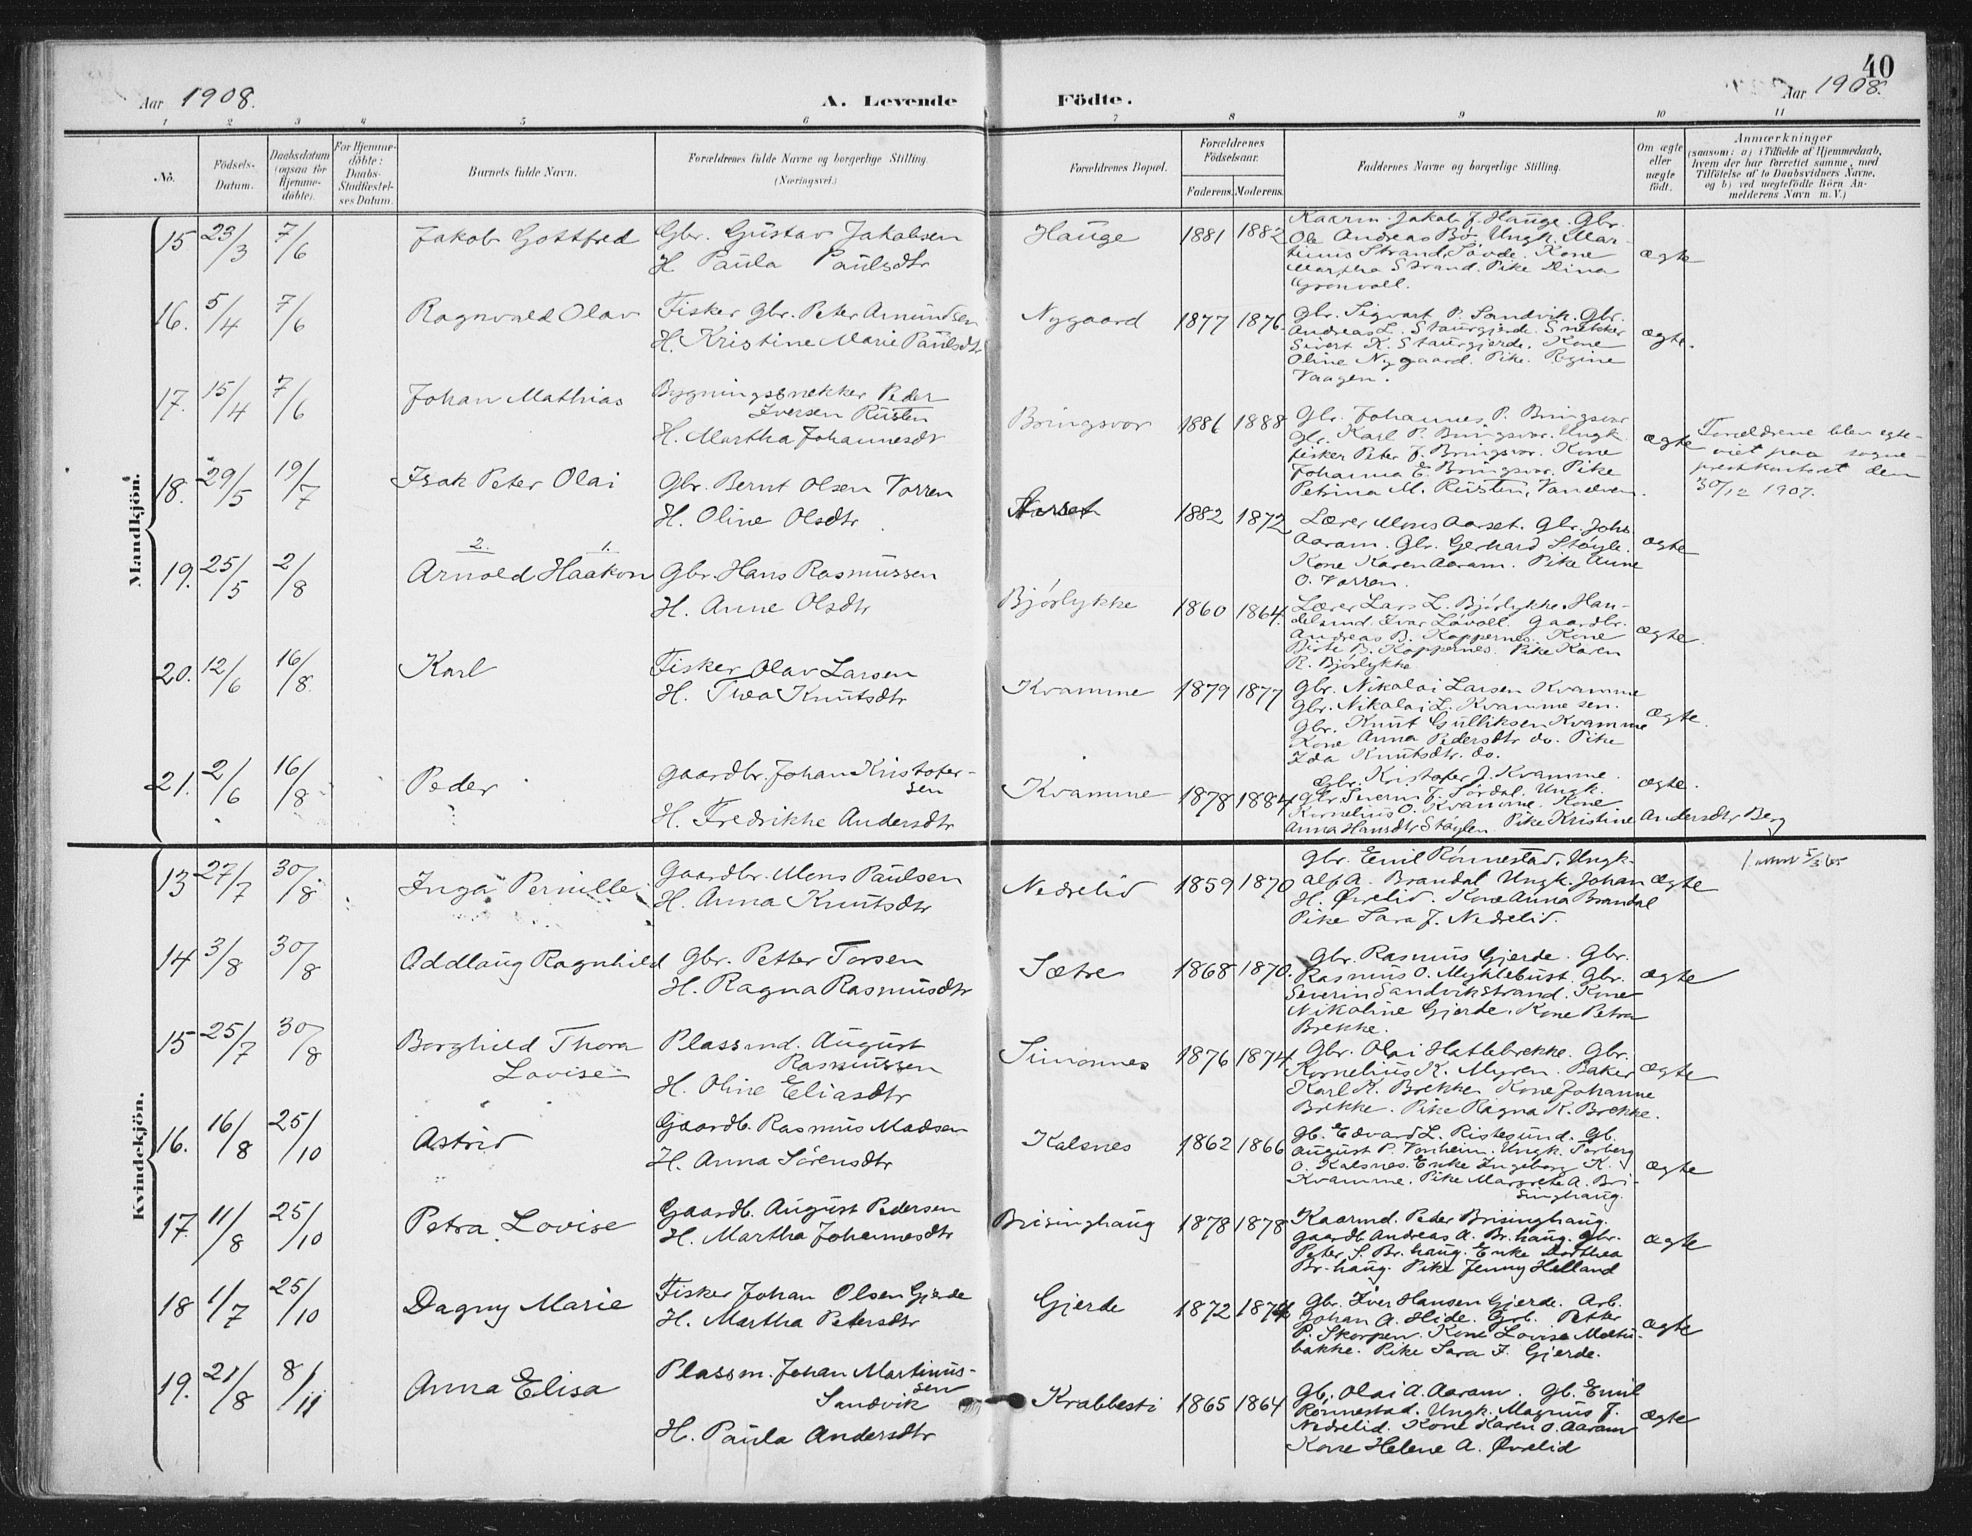 40
Aar 1908.
A. Levende
Födte.
Aar 1908.
1 2 3 4 5 6 7 8 9 10 11
No.
Födsels-
Datum.
Daabsdatum
(ogsaa for
Hjemme-
døbte).
For Hjemme-
døbte:
Daabs-
Stadfæstel-
ses Datum.
Barnets fulde Navn.
Forældrenes fulde Navne og borgerlige Stilling.
(Næringsvei.)
Forældrenes Bopæl.
Forældrenes
Födselsaar.
Faderens. Moderens.
Faddernes Navne og borgerlige Stilling.
Om ægte
eller
uægte
født.
Anmærkninger
(saasom: a) i Tilfælde af Hjemmedaab,
hvem der har forrettet samme, med
Tilföielse af to Daabsvidners Navne,
og b) ved uægtefödte Börn An-
melderens Navn m. V.)
Mandkjön.
15 23/3 7/6 Jakob Gottfred
Gbr. Gustav Jakobsen
H. Paula Paulsdtr
Hauge 1881 1882
Kaarm. Jakob J. Hauge. Gbr.
Ole Andreas Bø. Ungk. Mar-
tinus Strand, Søvde. Kone
Martha Strand. Pike Dina
Grönvoll.
ægte
16. 5/4 7/6 Ragnvald Olav
Fisker Gbr. Peter Amundsen
H. Kristine Marie Paulsdtr
Nygaard 1877 1876
Gbr. Sigvart P. Sandvik. Gbr.
Andreas L. Staurgjerde. Snekker
Sivert K. Staurgjerde. Kone
Oline Nygaard. Pike. Regine
Vaagen.
ægte.
17. 15/4 7/6 Johan Mathias
Bygningssnekker Peder
Iversen Rusten
H. Martha Johannesdr
Bringsvor 1886 1888
Gbr. Johannes P. Bringsvor
Gbr. Karl P. Bringsvor. Ungk.
fisker Peter J. Bringsvor. Kone
Johanna E. Bringsvor. Pike
Petrina M. Rusten, Vanelven.
ægte
Forældrene blev egte-
viet paa sogne-
prestkontoret den
30/12 1907.
18. 29/5 19/7 Isak Peter Olai
Gbr. Bernt Olsen Vorren
H. Oline Olsdtr
Aarset 1882 1872
Lærer Mons Aarset. Gbr. Johs.
Aaram. Gbr. Gerhard Støyle.
Kone Karen Aaram. Pike Anne
O. Vorren.
ægte
19. 25/5 2/8
2. 1.
Arnold Haakon
Gbr. Hans Rasmussen
H. Anne Olsdtr
Bjørlykke 1860 1864
Lærer Lars L. Bjørlykke. Han-
delsmd. Ivar Løvoll. Gaardbr.
Andreas B. Koppernes. Kone
Birte B. Koppernes. Pike Karen
R. Bjørlykke
ægte.
20. 12/6 16/8 Karl
Fisker Olav Larsen
H. Thea Knutsdtr
Kvamme 1879 1877
Gbr. Nikolai Larsen Kvamme
Gbr. Nikolai L. Kvamme sen.
Gbr. Knut Gulliksen Kvamme
Kone Anna Pedersdtr do. Pike
Ida Knutsdtr. do.
ægte.
21. 2/6 16/8 Peder
Gaardbr. Johan Kristofer-
sen
H. Fredrikke Andersdtr
Kvamme 1878 1884
Gbr. Kristofer J. Kvamme.
Gbr. Severin J. Sørdal. Ungk.
Kornelius O. Kvamme. Kone
Anna Hansdtr Støylen Pike Kristine Andersdtr Berg
ægte.
Kvindekjön.
13 27/7 30/8 Inga Pernille
Gaardbr. Mons Paulsen
H. Anna Knutsdtr
Nedrelid 1859 1870
Gbr. Emil Rønnestad. Ungk.
Alf A. Brandal Ungk. Johan
H. Øvrelid. Kone Anna Brandal
Pike Sara J. Nedrelid.
ægte
14 3/8 30/8 Oddlaug Ragnhild
Gbr. Petter Torsen
H. Ragna Rasmusdtr
Sætre 1868 1870.
Gbr. Rasmus Gjerde. Gbr.
Rasmus O. Myklebust. Gbr.
Severin Sandvikstrand. Kone
Nikoline Gjerde. Kone Petra
Brekke.
ægte
15 25/7 30/8 Borghild Thora
Lovise
Plassmd. August
Rasmussen
H. Oline Eliasdtr
Simonnes 1876 1874
Gbr. Olai Hatlebrekke. Gbr.
Kornelius K. Myren. Baker
Karl K. Brekke. Kone Johanne
Brekke. Pike Ragna K. Brekke.
ægte
16. 16/8 25/10 Astrid
Gaardb. Rasmus Madsen
H. Anna Sörensdtr
Kalsnes 1862 1866
Gb. Edvard L. Ristesund. Gb.
August P. Vonheim. Ungk. Torberg
O. Kalsnes. Enke Ingeborg K.
Kvamme. Pike Margrete A. Bri-
singhaug.
ægte
17. 11/8 25/10 Petra Lovise
Gaardb. August Pedersen
H. Martha Johannesdtr
Brisinghaug 1878 1878
Kaarmd. Peder Brisinghaug.
Gaardb Andreas A. Br.haug. Gbr.
Peter S. Br.haug. Enke Dorthea
Br-haug. Pike Jenny Helland
ægte
18 1/7 25/10 Dagny Marie
Fisker Johan Olsen Gjerde
H. Martha Petersdtr
Gjerde 1872 1874
Gbr. Iver Hansen Gjerde. Arb.
Johan A. Hide. Grb. Petter
P. Skorpen. Kone Lovise Moltu-
bakke. Pike Sara J. Gjerde.
ægte
19. 21/8 8/11 Anna Elisa
Plassm. Johan Martinus-
sen
Sandvik
H. Paula Andersdtr
Krabbesti 1865 1864
Gb. Olai A. Aaram. Gb. Emil
Rönnestad. Ungk. Magnus J.
Nedrelid. Kone Karen O. Aaram
Kone Helene A. Øvrelid
ægte